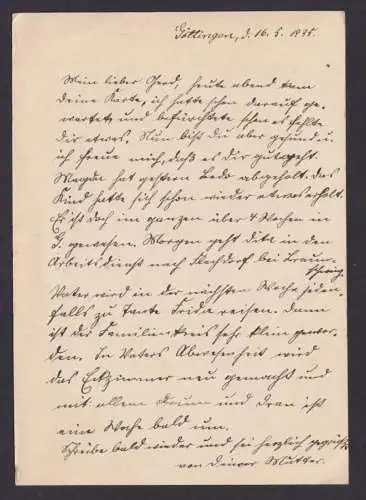 Göttingen, d. 16. 5. 1935.
Mein lieber Gerd, heute abend kam
deine Karte, ich hatte schon darauf ge-
wartet und befürchtete schon es fehlte
dir etwas. Nun bist du aber gesund u.
ich freue mich, daß es dir gut geht.
Magda hat gestern abgeholt. das
Kind hatte sich schon wieder etwas erholt.
Er ist doch im ganzen über 4 Wochen in
G. gewesen. Morgen geht in den
Arbeitsdienst nach Flechdorf bei Braun-
schweig.
Vater wird in der nächsten Woche jeden-
falls zu Tante Frida reisen. dann
ist der Familienkreis sehr klein gewor-
den. In Vaters Abwesenheit wird
das Eckzimmer neu gemacht und
mit allem drum und dran ist
eine Woche bald um.
Schreibe bald wieder und sei herzlich gegrüßt
von deiner Mutter.